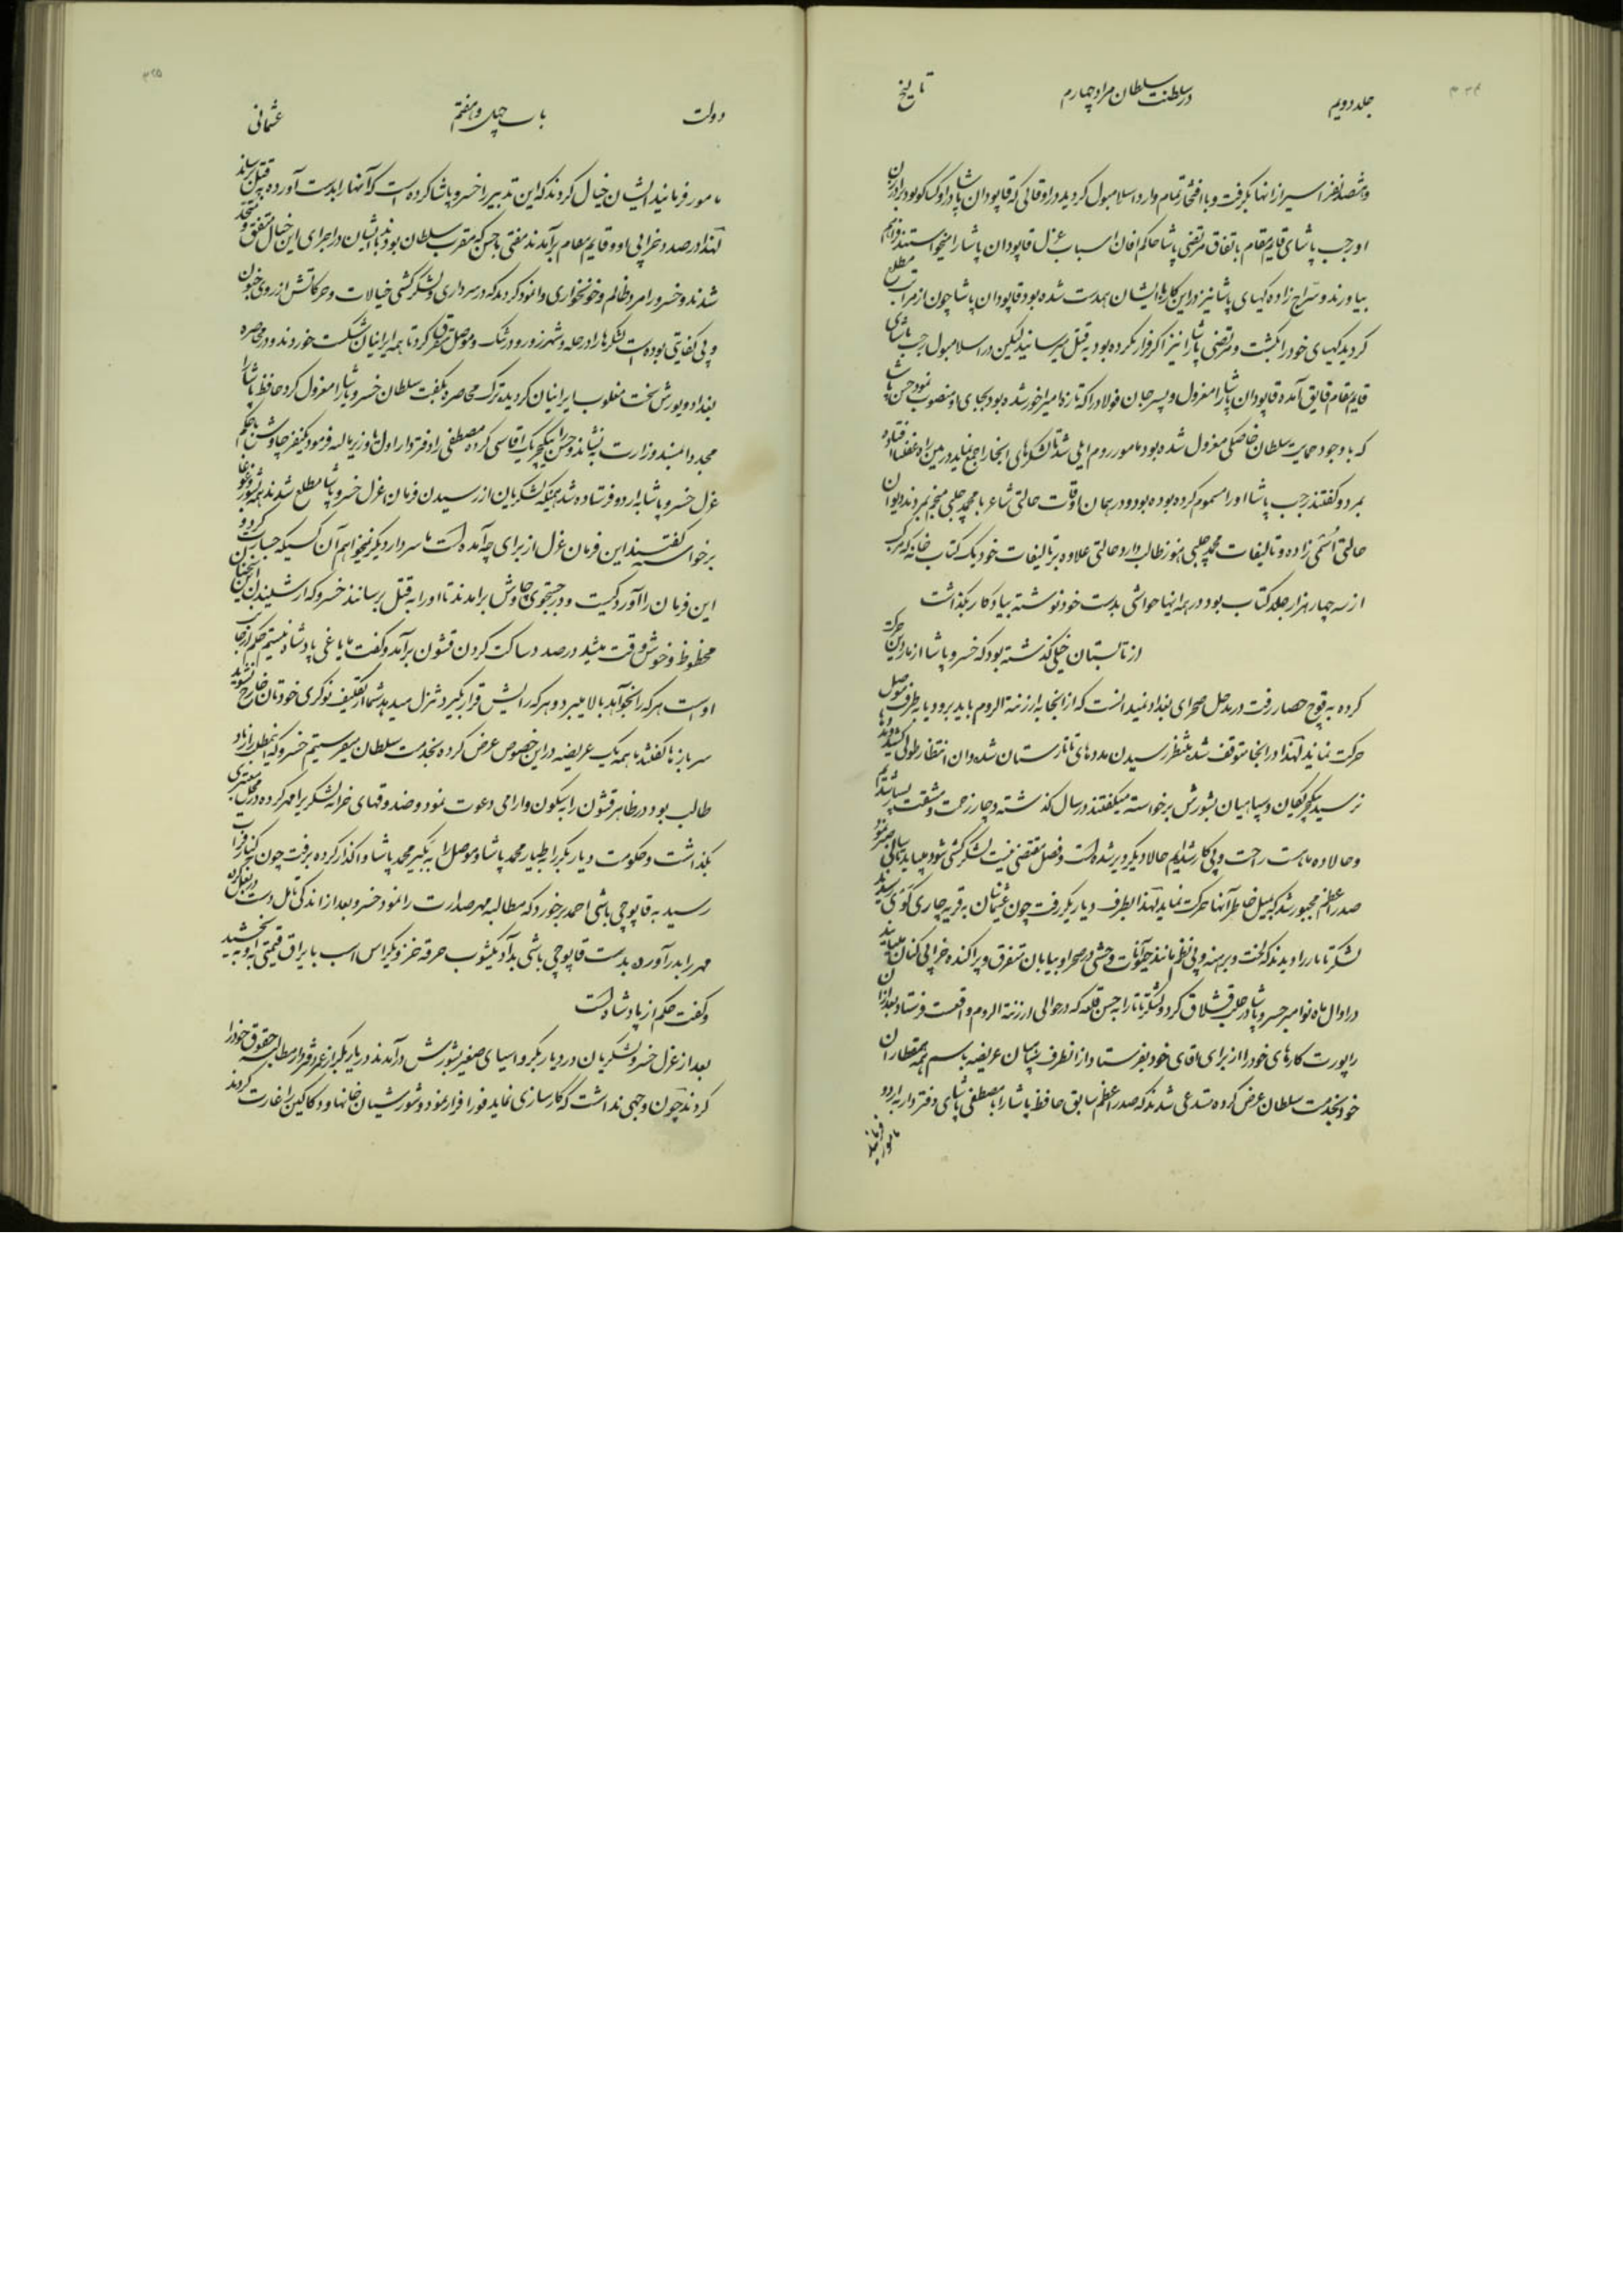 جلد دویم
در سلطنت سلطان مراد چهارم
تاریخ
و ششصد نفر اسیر از آنها بگرفت و با افتخار تمام وارد اسلامبول گردید در اوقاتی که قاپودان پاشا در اوکساکوو بود برادران
او رجب پاشای قایم مقام باتفاق مرتضی پاشا حاکم اسباب عزل قاپودان پاشا را میخواستند فراهم
بیاورند و سراج زاده کهیای پاشا نیز در این کار با ایشان همدست شده بود قاپودان پاشا چون از مراتب مطلع
گردید کهیای خود را بکشت و مرتضی پاشا را نیز اگر فرار نکرده بود به قتل میرسانید لیکن در اسلامبول رجب پاشای
قایم مقام فایق آمده قاپودان پاشا را معزول و پسر جان فولاد را که تازه امیراخور شده بود بجای او منصوب نمود حسن پاشا
که با وجود حمایت سلطان خاصکی معزول شده بود مامور روم ایلی شد تا لشکرهای آنجا را جمع نماید در بین راه غفلتا افتاده
بمرد و گفتند رجب پاشا او را مسموم کرده بوده بود و در همان اوقات حالتی شاعر با محمد چلبی منجم بمردند دیوان
حالتی عزمی زاده و تالیفات محمد چلبی هنوز طالب دارد حالتی علاوه بر تالیفات خود یک کتاب خانه که مرکب
از سه چهار هزار جلد کتاب بود و در همه اینها حواشی بدست خود نوشته بیادگار بگذاشت
از تابستان خیلی گذشته بود که خسرو پاشا از ماردین حرکت
کرده به قوچ حصار رفت در مدخل صحرای بغداد نمیدانست که از آنجا به ارزنة الروم باید برود یا بطرف موصل
حرکت نماید لهذا در آنجا متوقف شد منتظر رسیدن مددهای تاتارستان شد و ان انتظار طولی کشید مددها
نرسید ینکیچریکان و سپاهیان بشورش برخواسته میگفتند در سال گذشته دچار زحمت و مشقت بسیار شدیم
و حالا ده ماه است راحت و بی کار شده‌ایم حالا دیگر دیر شده است و فصل مقتضی نیست لشکر کشی شود میباید صبر نمود
صدر اعظم مجبور شد که بمیل خاطر آنها حرکت نماید لهذا بطرف دیاربکر رفت چون عثمانیان به قریه چاری کوی رسیدند
لشکر تاتار را دیدند که لخت و برهنه و بی نظم مانند حیوانات وحشی در صحرا و بیابان متفرق و پراکنده خرابی کنان میایند
در اوایل ماه نوامبر خسرو پاشا در حلب قشلاق کرد و لشکر تاتار را به حسن قلعه که در حوالی ارزنة الروم واقعست فرستاد بعد از آن
راپورت کارهای خود را از برای آقای خود بفرستاد از آنطرف سپاهیان عریضه باسم همه قطاران
خود بخدمت سلطان عرض کرده مستدعی شدند که صدر اعظم سابق حافظ پاشا را با مصطفی پاشای دفتردار به اردو
مامور فرمایند
دولت
باب چهل و هفتم
عثمانی
مامور فرمانید ایشان خیال کردند که این تدبیر را خسرو پاشا کرده است که آنها را بدست آورده به قتل رساند
لهذا در صدد خرابی او و قایم مقام برآمدند مفتی با حسن که مقرب سلطان بودند با ایشان در اجرای این خیال متفق و متحد
شدند و خسرو را مرد ظالم و خونخواری وانمود کردند که در سرداری و لشکر کشی خیالات و حرکاتش از روی جنون
و بی کفایتی بوده است لشکرها را در حله و شهر زور و درتنک و موصل متفرق کرد تا همه از ایرانیان شکست خوردند و در محاصره
بغداد و یورش سخت مغلوب ایرانیان گردیده ترک محاصره بگفت سلطان خسرو پاشا را معزول کرد حافظ پاشا را
مجددا بمسند وزارت بنشاند و حسن را ینکیچری آقاسی کرده مصطفی را دفتردار اول و وزیر مالیه فرمود یکنفر چاوش با حکم
عزل خسرو پاشا به اردو فرستاده شد همینکه لشکریان از رسیدن فرمان عزل خسرو پاشا مطلع شدند بشورش و غوغا
برخواسته گفتند این فرمان عزل از برای چه آمده است ما سردار دیگر نمیخواهیم آن کسیکه جسارت کرده و
این فرمان را آورد کیست و در جستجوی چاوش برآمدند تا او را به قتل برسانند خسرو که از شنیدن این سخنان
محظوظ و خوش وقت میشد در صدد ساکت کردن قشون برآمد و گفت ما یاغی پادشاه نیستیم حکم از جانب
اوست هر که را بخواهد بالا میبرد و هر که رایش قرار بگیرد تنزل میدهد شما از تکلیف نوکری خودتان خارج نشوید
سربازها گفتند ما همه یک عریضه در این خصوص عرض کرده بخدمت سلطان میفرستیم خسرو که این مطلب را زیاد
طالب بود در ظاهر قشون را بسکون و آرامی دعوت نمود و صندوقهای خزانه لشکر را مهر کرده در محل معتبری
بگذاشت و حکومت دیاربکر را به طیار محمد پاشا و موصل را به بکیر محمد پاشا واگذار کرده برفت چون
رسید به قاپوچی باشی احمد برخورد که مطالبه مهر صدارت را نمود خسرو بعد از اندکی تامل دست در بغل کرده
مهر را بدر آورده بدست قاپوچی باشی بداد یکثوب خرقه خز و یکراس اسب با یراق قیمتی به او بخشید
و گفت حکم از پادشاه است
بعد از عزل خسرو لشکریان در دیاربکر و اسیای صغیر بشورش درآمدند در دیاربکر از دفتردار مطالبه حقوق خود را
کردند چون وجهی نداشت که کارسازی نماید فورا فرار نمود و شورشیان خانها و دکاکین را غارت کردند